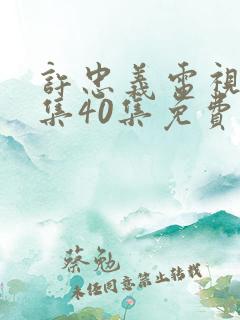 許忠義電視
集40集免費
蔡勉
未任同意禁止转载